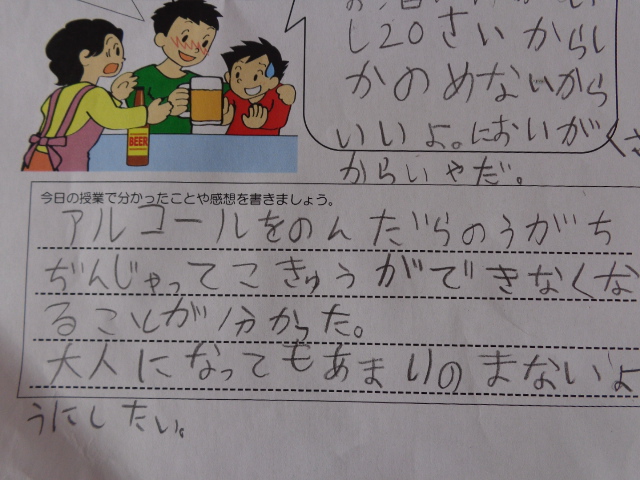 し20さいからし
かのめないから
いいよ。においが
からいやだ。
BEER
今日の授業で分かったことや感想を書きましょう。
アルコールをのんだらのうがち
ぢんじゃってこきゅうができなくな
ることが分かった。
大人になってもあまりのまないよ
うにしたい。